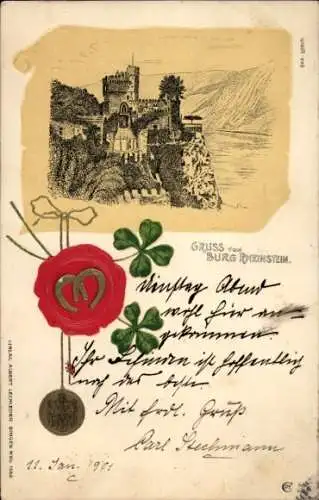 GRUSS von
BURG RHEINSTEIN.
Dinstag Abend
wohl hier an-
gekommen.
Ihr Befinden ist hoffentlich
noch das beste
Mit frdl. Gruß
Carl Stechmann
11. Jan. 1901
VERLAG ALBERT